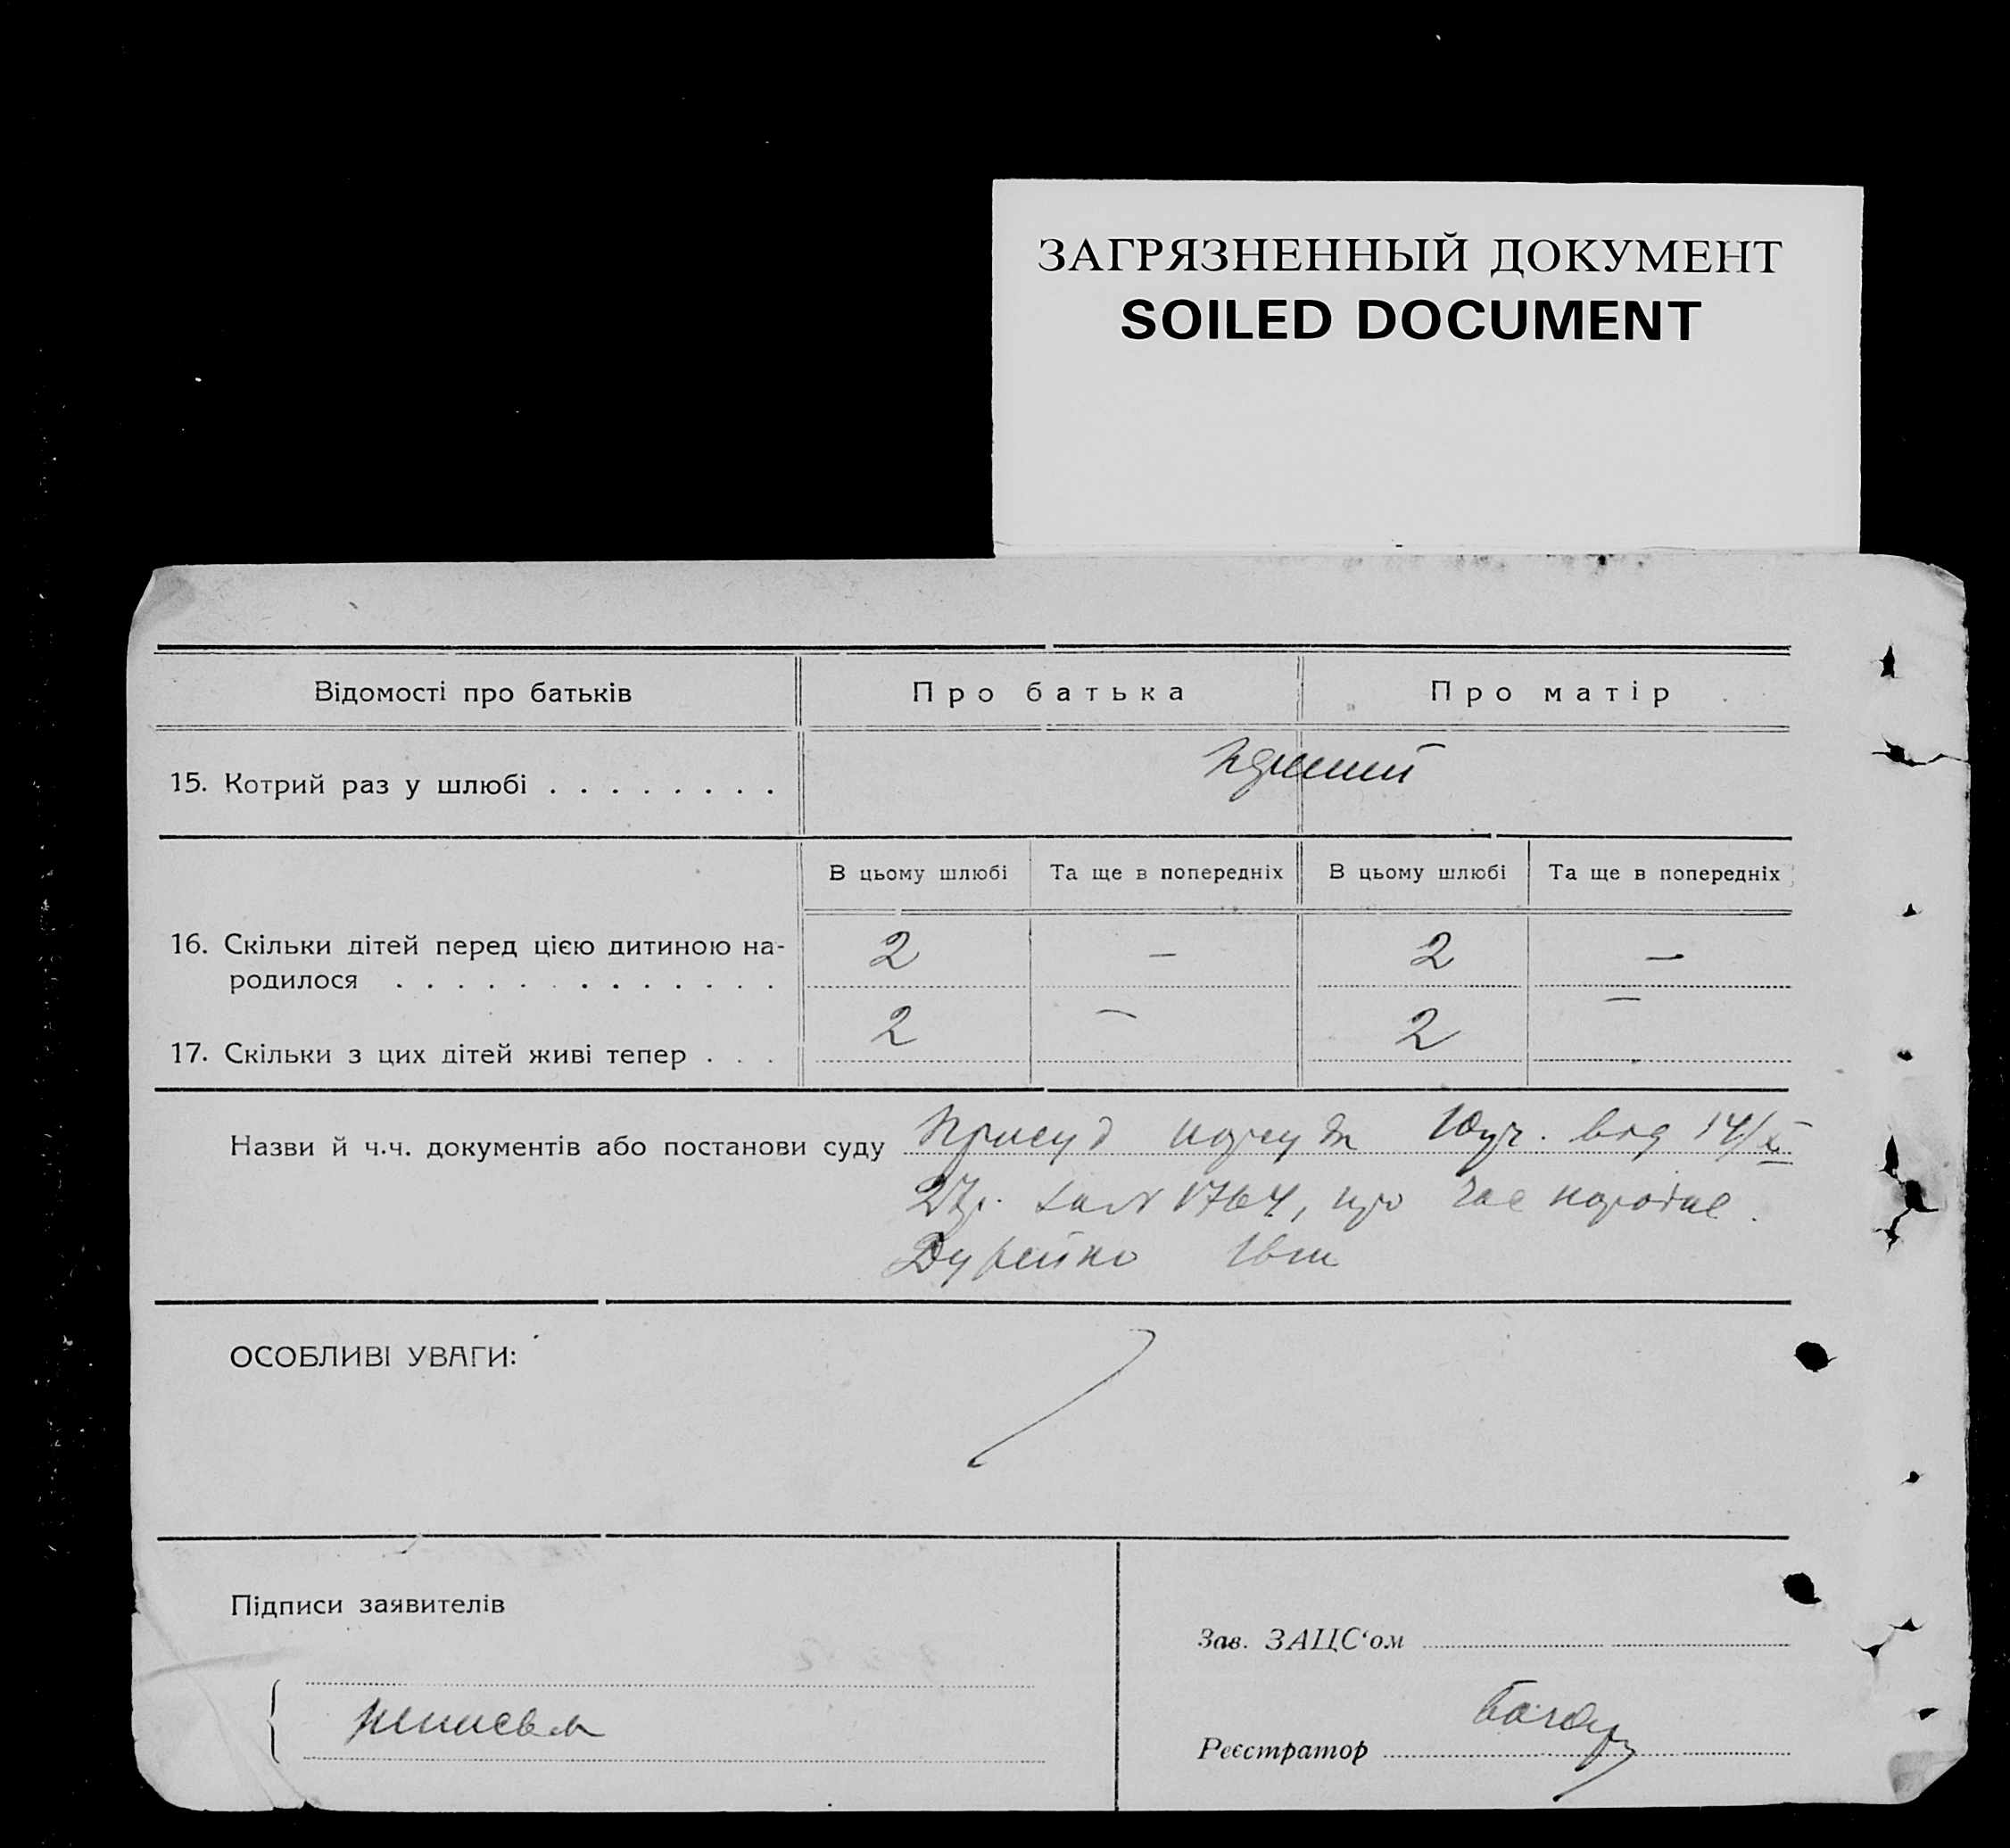 ЗАГРЯЗНЕННЫЙ ДОКУМЕНТ
SOILED DOCUMENT
Відомості про батьків Про батька Про матір
15. Котрий раз у шлюбі . . . . . . . .
В цьому шлюбі Та ще в попередніх В цьому шлюбі Та ще в попередніх
16. Скільки дітей перед цією дитиною на- 2 — 2 —
родилося . . . . . . . . . . . . .
17. Скільки з цих дітей живі тепер . . . 2 — 2 —
Назви й ч.ч. документів або постанови суду Присуд нарсуда від 14/X
1764, про час народже.
ОСОБЛИВІ УВАГИ:
Підписи заявителів
Зав. ЗАЦС'ом
Реєстратор